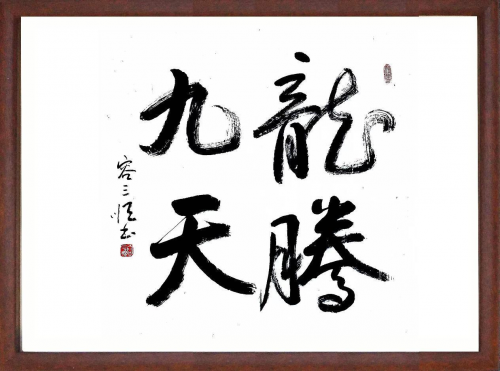 龍騰
九天
容三恆书